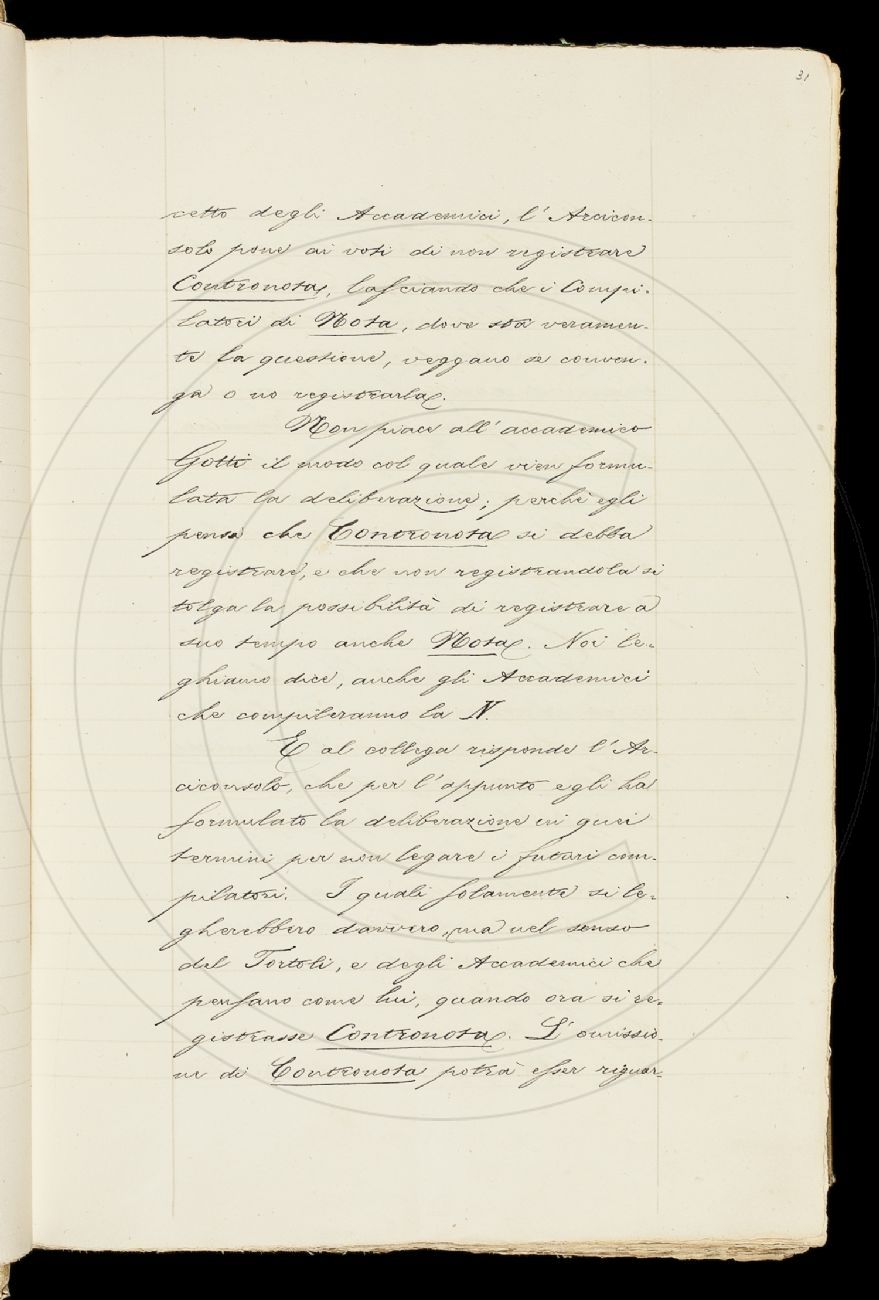 31
cetto degli Accademici, l' Arcicon-
solo pone ai voti di non registrare
Contronota, lasciando che i Compi-
latori di Nota, dove sta veramen-
te la questione, veggano se conven-
ga o no registrarla.
Non piace all' accademico
Gotti il modo col quale vien formu-
lata la deliberazione; perchè egli
pensa che Contronota si debba
registrare, e che non registrandola si
tolga la possibilità di registrare a
suo tempo anche Nota. Noi le-
ghiamo dice, anche gli Accademici
che compileranno la N.
E al collega risponde l' Ar-
ciconsolo, che per l' appunto egli ha
formulato la deliberazione in quei
termini per non legare i futuri com-
pilatori. I quali solamente si le-
gherebbero davvero, ma nel senso
del Tortoli, e degli Accademici che
pensano come lui, quando ora si re-
gistrasse Contronota. L' omissio-
ne di Contronota potrà esser riguar-